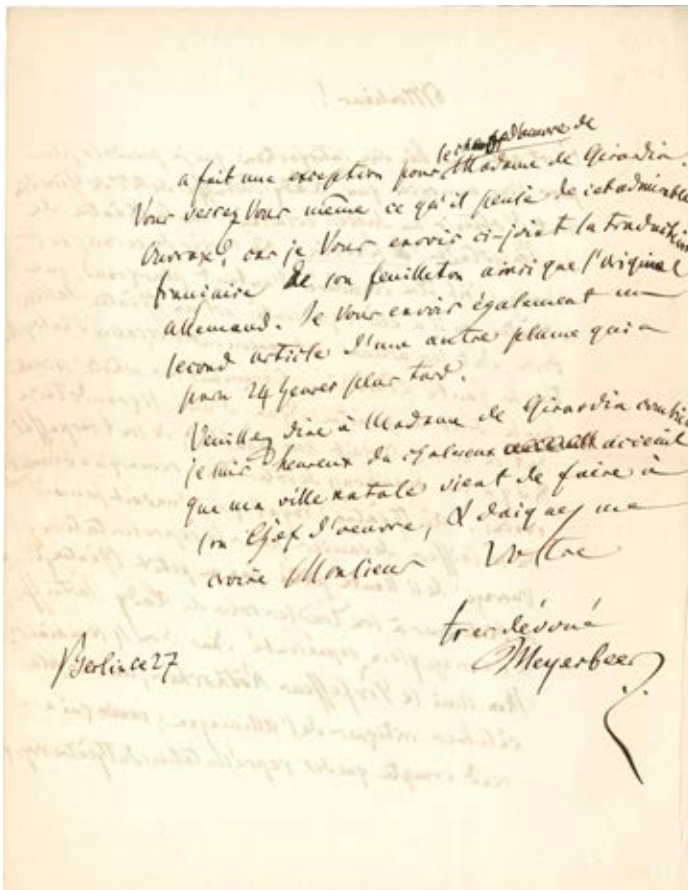 le chef d'oeuvre de
a fait une exception pour Madame de Girardin.
Vous verrez Vous même ce qu'il pense de cet admirable
ouvrage, car je Vous envois ci-joint la traduction
française de son feuilleton ainsi que l'original
allemand. Je Vous envois également un
second article d'une autre plume qui a
paru 24 heures plus tard.
Veuillez dire à Madame de Girardin combien
je suis heureux du chaleureux accueil
que ma ville natale vient de faire à
son Chef d'oeuvre, & daignez me
croire Monsieur Votre
tres dévoué
Meyerbeer
Berlin ce 27